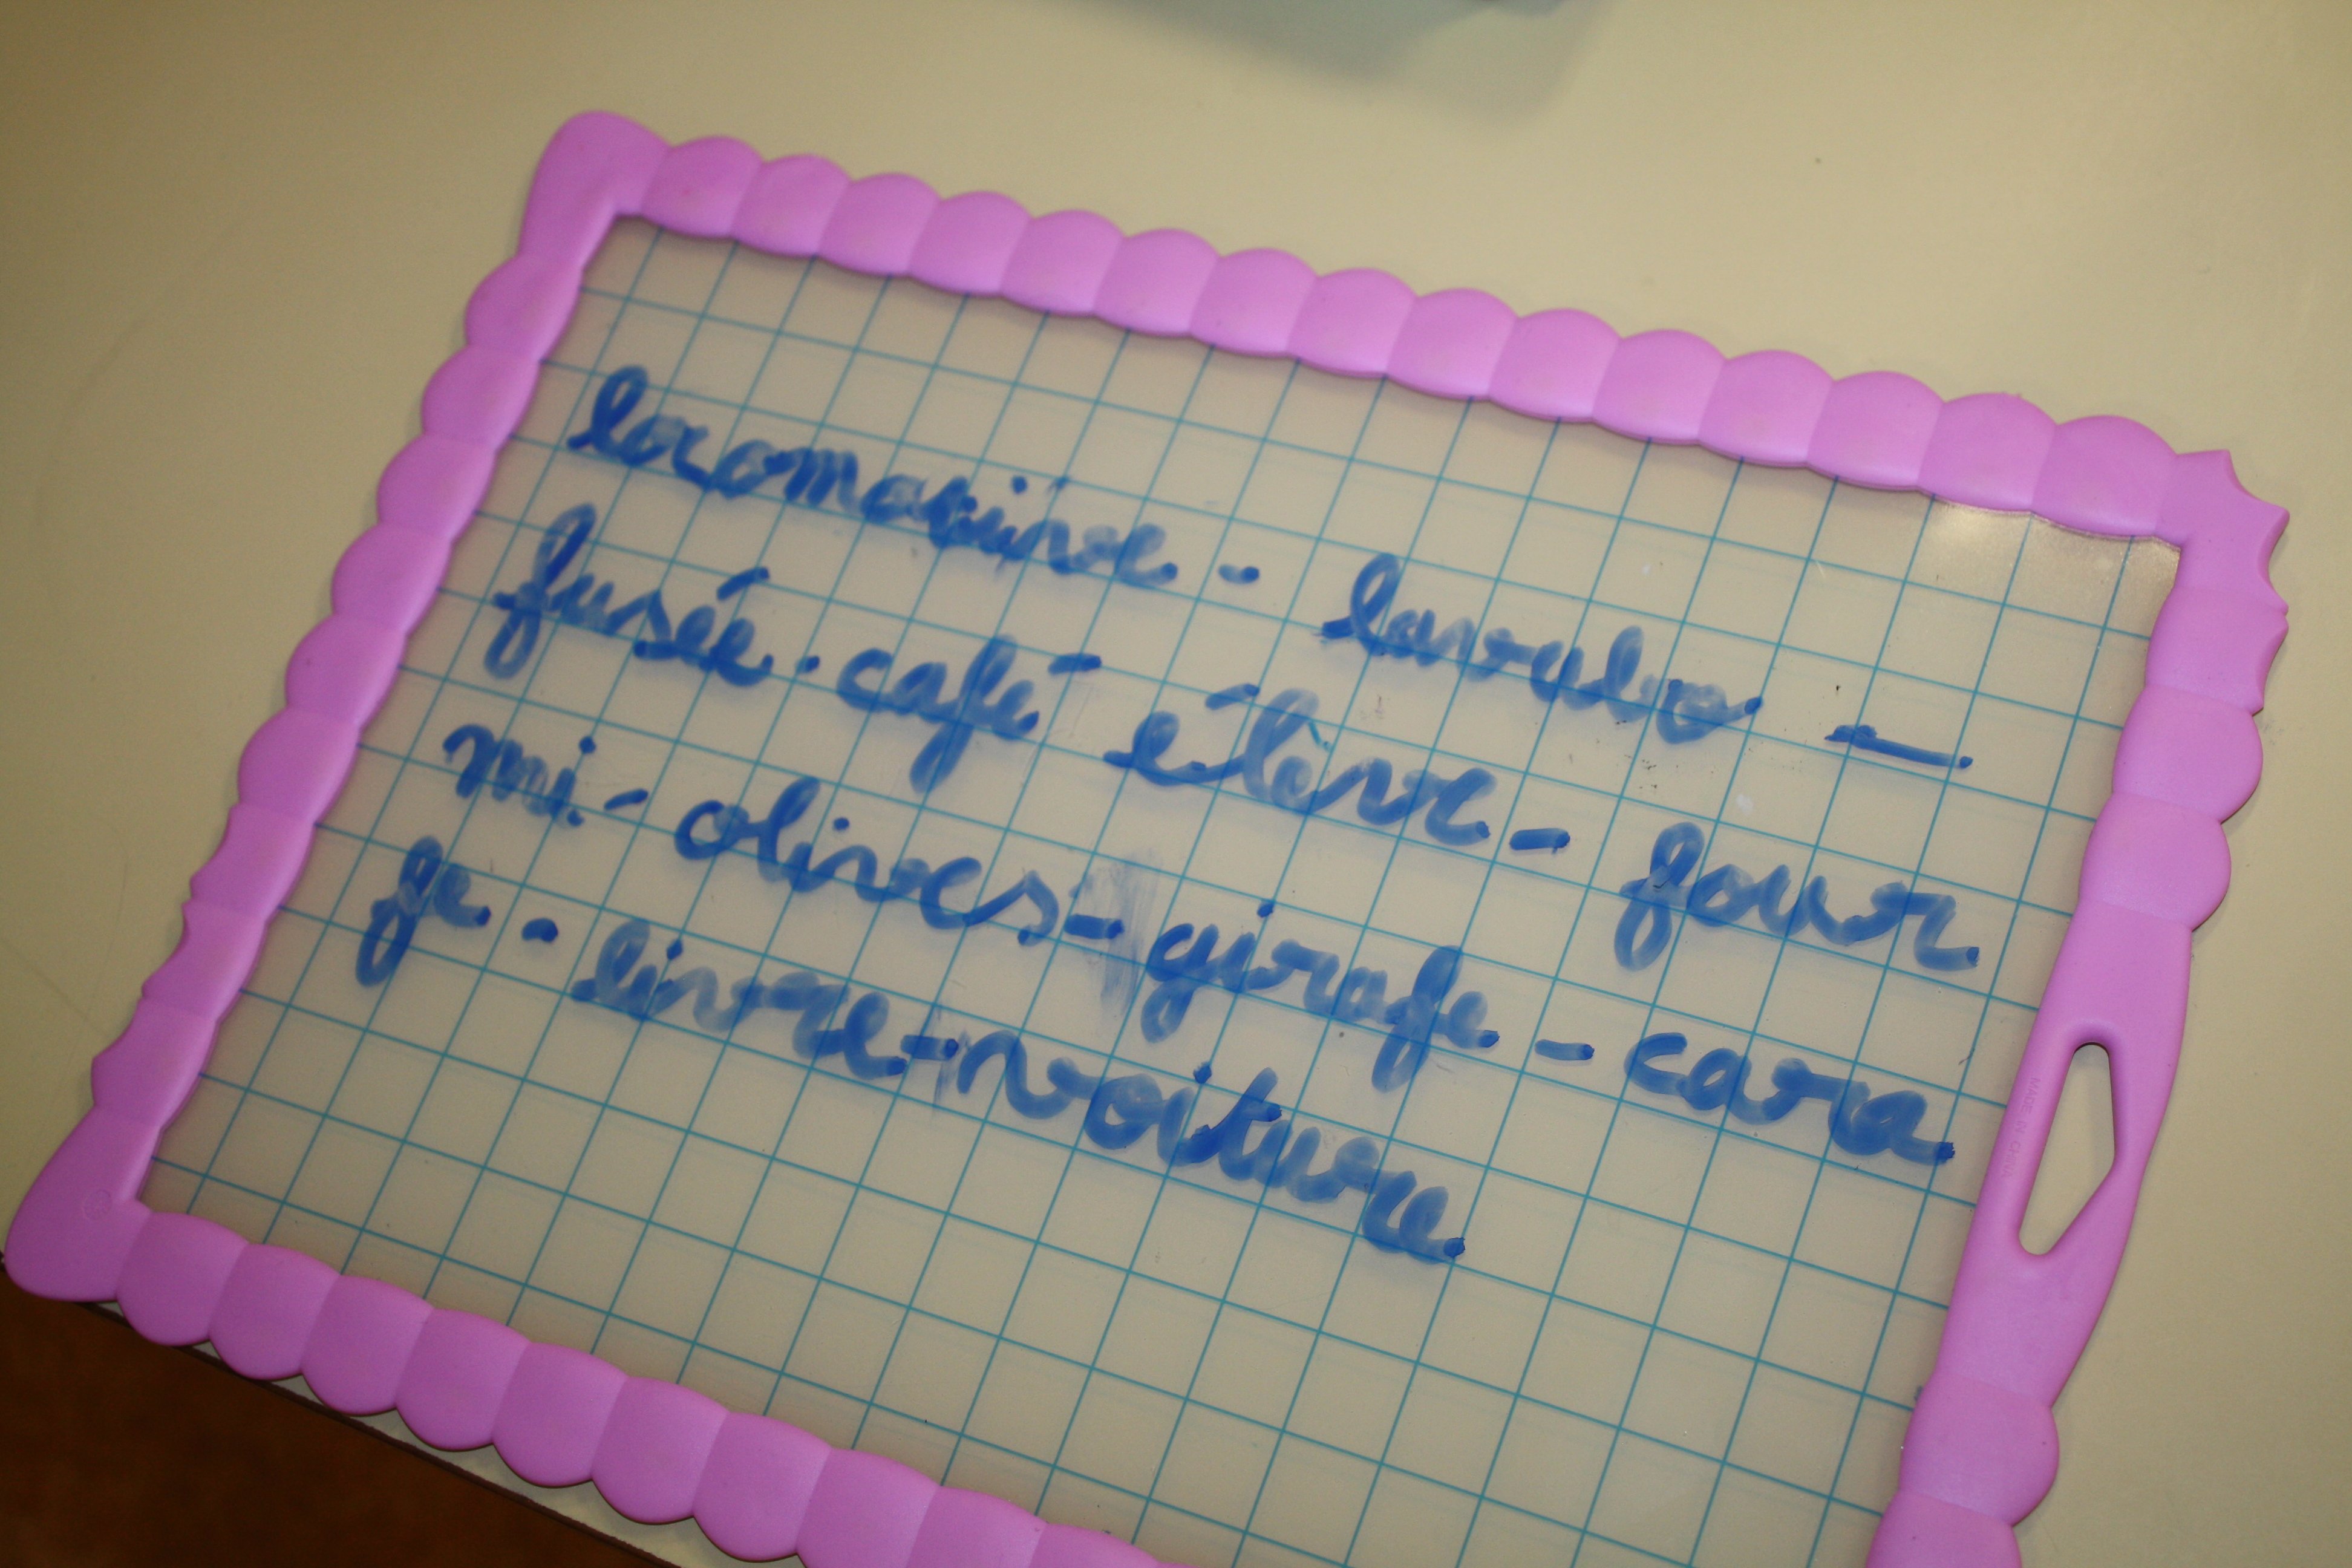 locomotive - lavabo -
fusée - café - élève - four
mi - olives - girafe - cara
fe - livre - voiture
MADE IN CHINA